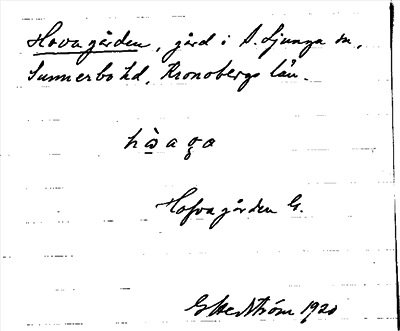 Hovagården, gård i S. Ljunga sn,
Sunnerbo hd, Kronobergs län.
Hofvagården G.
1920